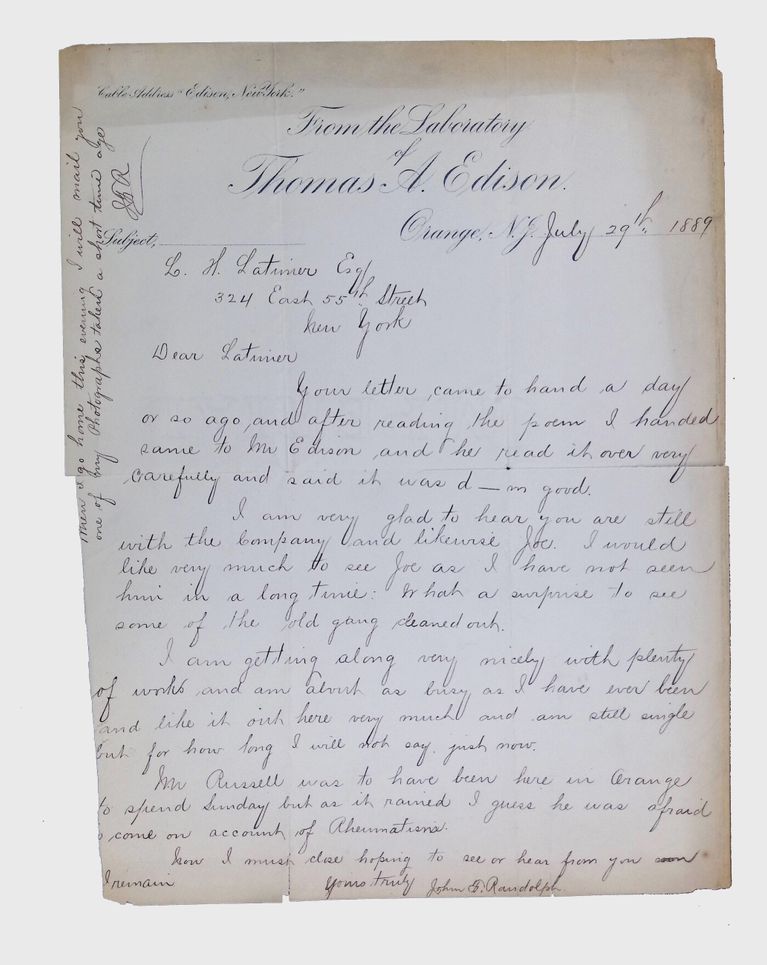 Cable Address "Edison, New York."
From the Laboratory
of
Thomas A. Edison.
Orange, N.J. July 29th, 1889
Subject,
L. H. Latimer Esq
324 East 55th Street
New York
Dear Latimer
Your letter came to hand a day
or so ago, and after reading the poem I handed
same to Mr Edison and he read it over very
carefully and said it was d—m good.
I am very glad to hear you are still
with the Company and likewise Joe. I would
like very much to see Joe as I have not seen
him in a long time: What a surprise to see
some of the old gang cleaned out.
I am getting along very nicely with plenty
of works and am about as busy as I have ever been
and like it out here very much and am still single
but for how long I will not say just now.
Mr Russell was to have been here in Orange
to spend Sunday but as it rained I guess he was afraid
to come on account of Rheumatism.
Now I must close hoping to see or hear from you soon
I remain
Yours truly John F. Randolph.
When I go home this evening I will mail you
one of my Photographs taken a short time ago
JFR